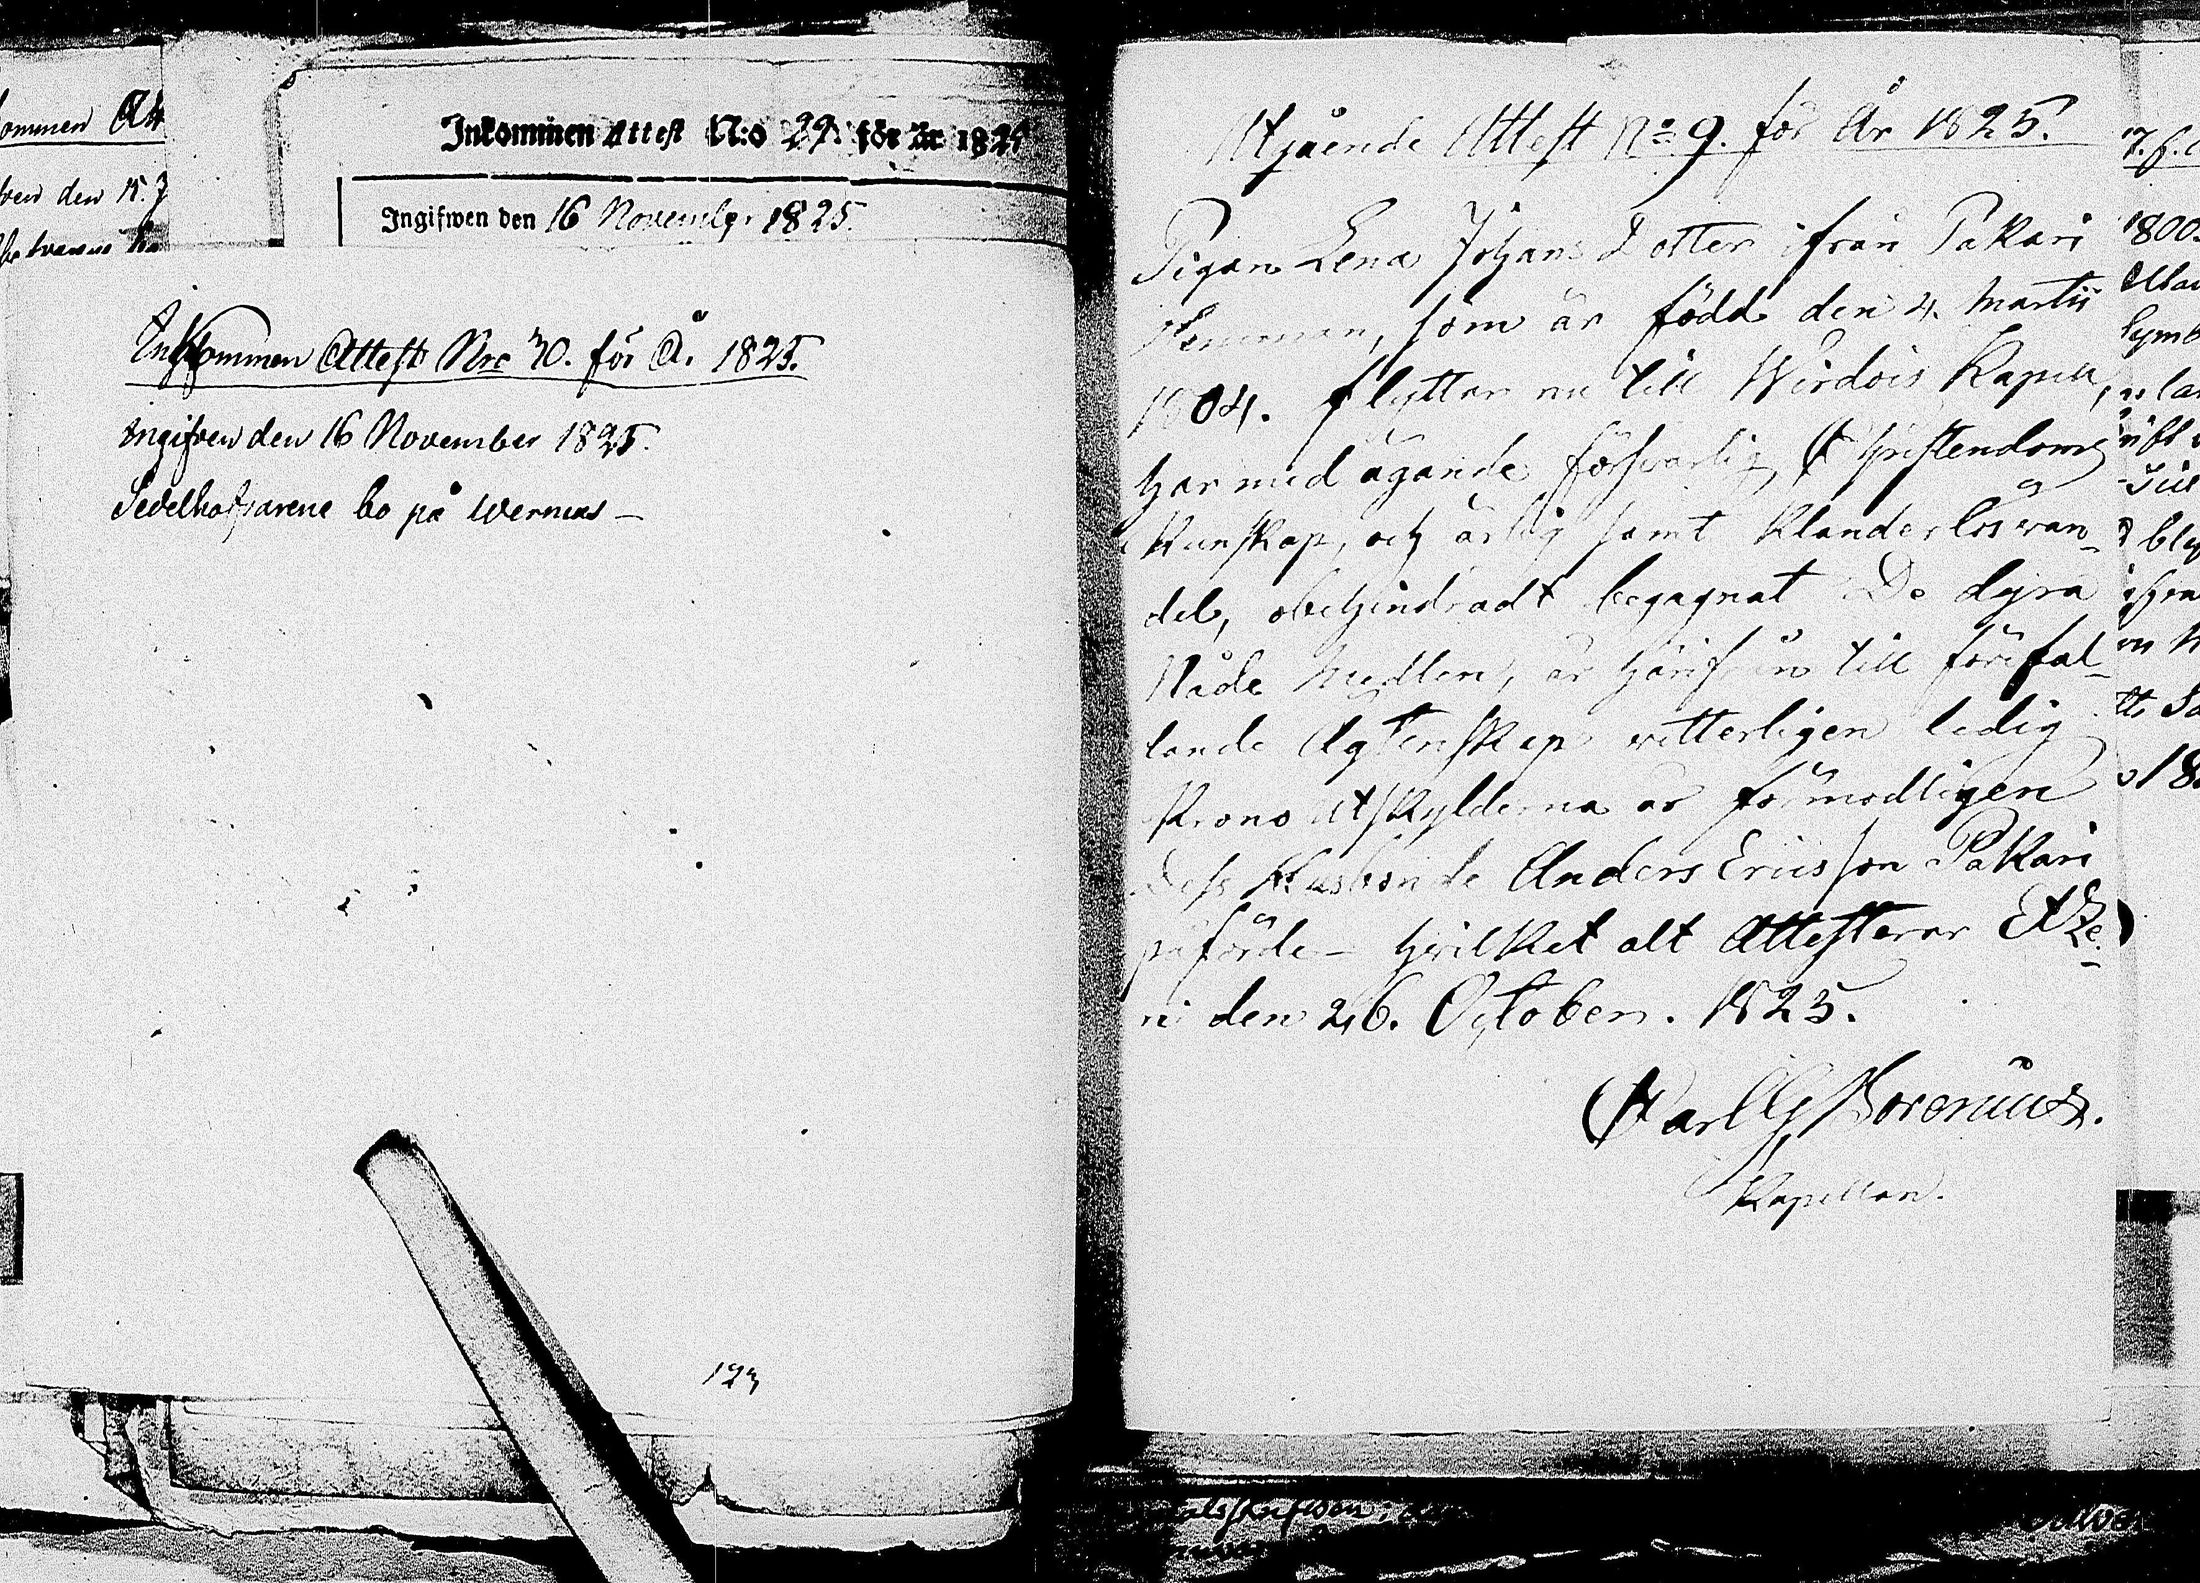 ommen Att
Inkommen Attest N:o 29. för år 1825
Ingifwen den 16 November 1825.
Inkommen Attest Nro 30. för År 1825.
Ingifven den 16 November 1825.
Sedelhafvarene bo på Werneas
123
Utgående Attest No 9. för År 1825.
Pigan Lena Johans Dotter ifrån Pakari
Hemman, som är född den 4. Martii
1804. flyttar nu till Wirdois Kapell,
har med ägande försvarlig Christendoms
Kunskap, och ärlig samt klanderlös van-
del, obehindradt begagnat De dyra
Nåde Medlen, är härifrån till förefal-
lande Ägtenskap vitterligen ledig
Krono Utskylderna är förmodligen
Dess Husbonde Anders Ericsson Pakari
påförde hvilket alt Attesterar Etze-
ri den 26. October. 1825.
Carl G Borenius.
Kapellan.